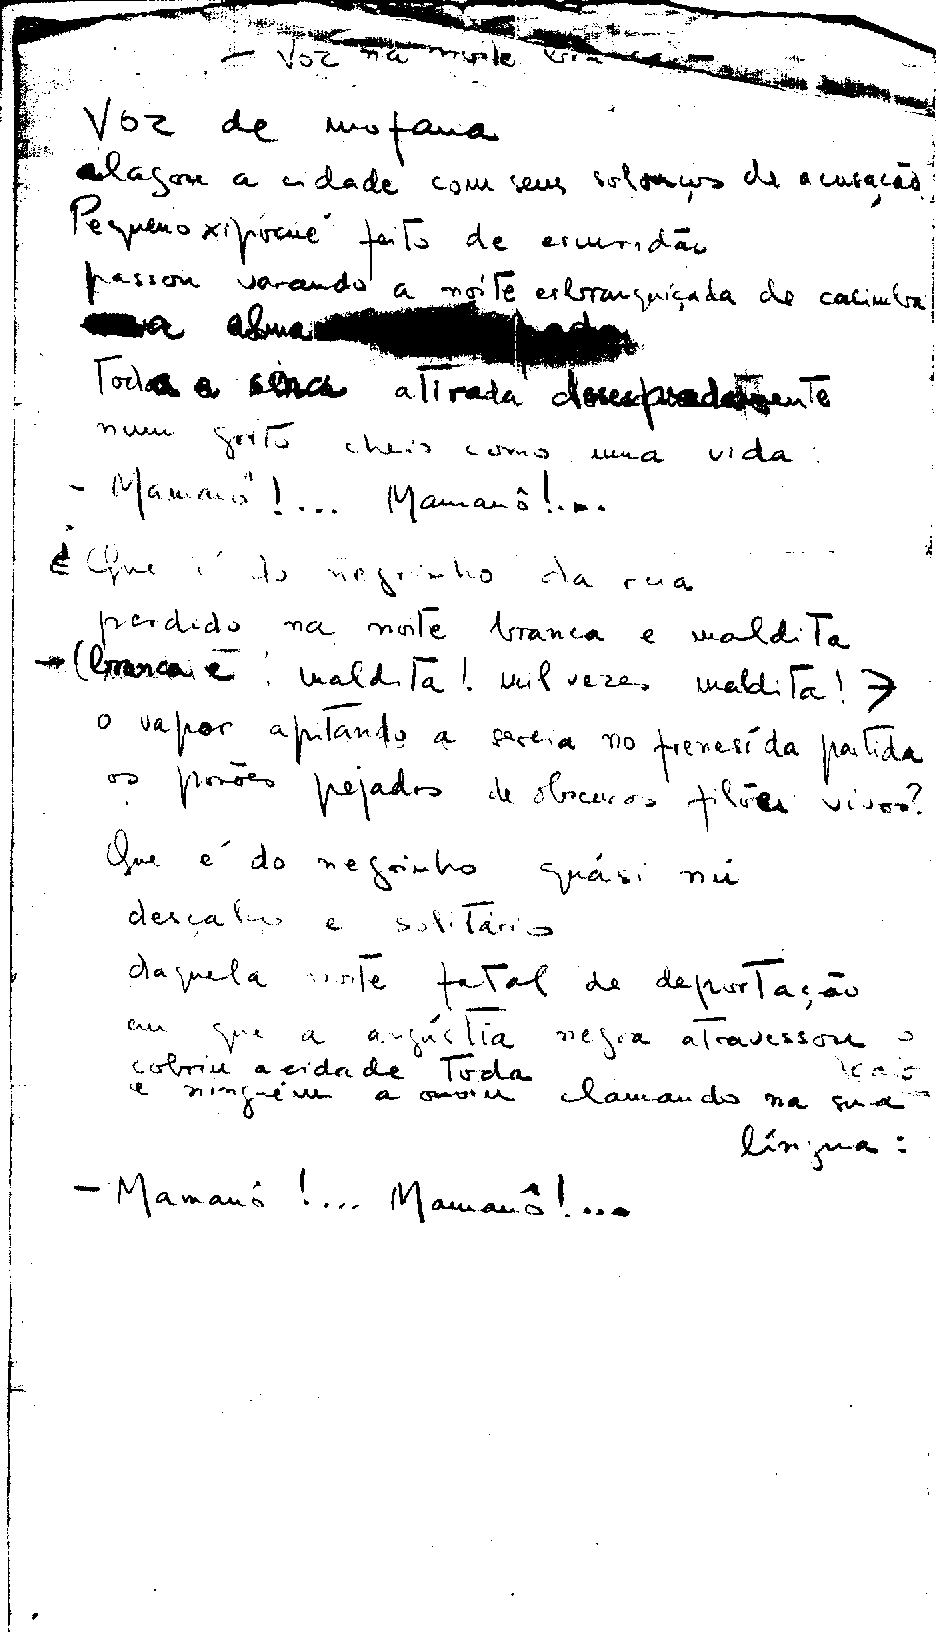 - Voz na noite
Voz de mofana
alagou a cidade com seus soluços de acusação
Pequeno xipócué feito de escuridão
passou varando a noite esbranquiçada de cacimba
a alma
Toda a atirada desesperadamente
num grito cheio como uma vida:
- Mamanô!... Mamanô!...
Que é do negrinho da rua
perdido na noite branca e maldita
(branca e maldita! mil vezes maldita!)
o vapor apitando a sereia no frenesí da partida
os porões pejados de obscuros filões vivos?
Que é do negrinho quási nú
descalço e solitário
daquela noite fatal de deportação
em que a angústia negra atravessou o
cobriu a cidade Toda
e ninguém a ouviu clamando na sua
língua:
- Mamanô!... Mamanô!...